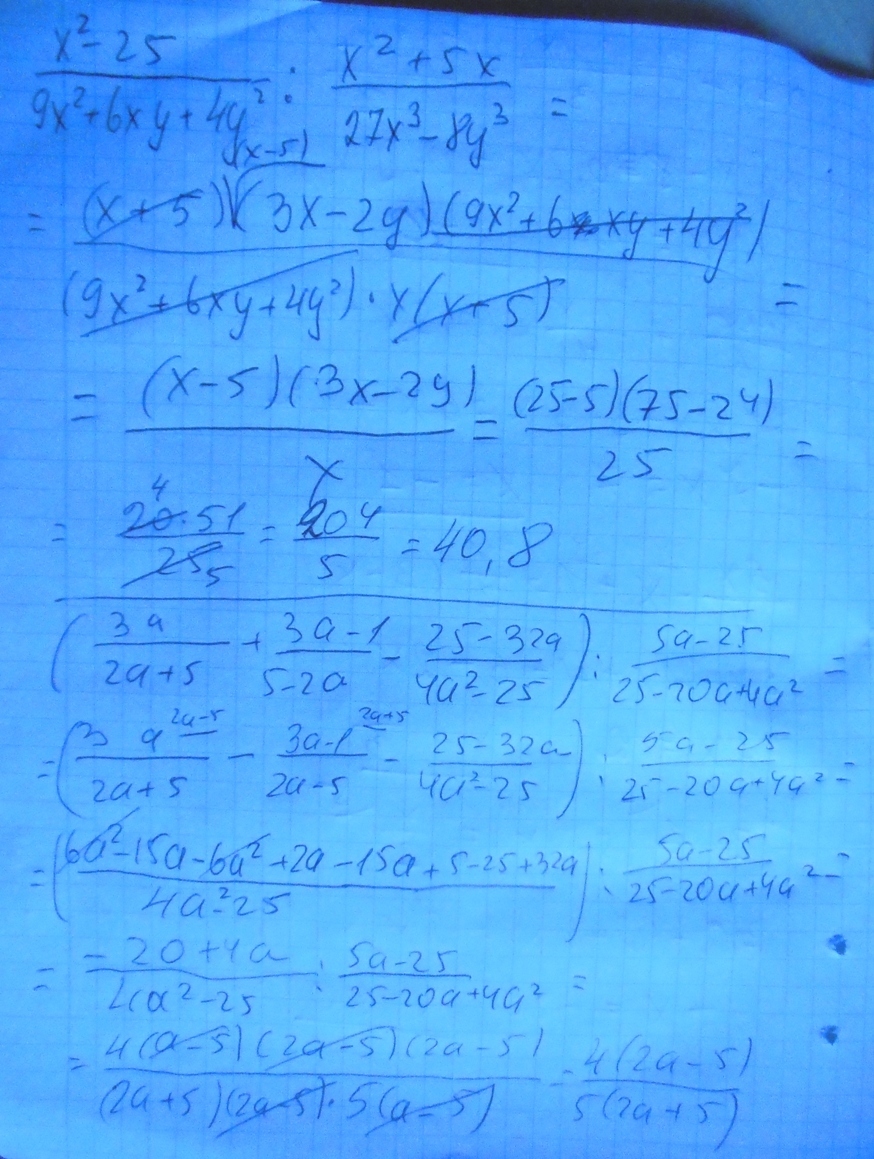 (x²-25)/(9x²+6xy+4y²) : (x²+5x)/(27x³-8y³) =
= (x+5)(x-5)(3x-2y)(9x²+6xy+4y²) / (9x²+6xy+4y²)·x(x+5) =
= (x-5)(3x-2y)/x = (25-5)(75-24)/25 =
= 20·51/25 = 204/5 = 40,8
(3a/(2a+5) + (3a-1)/(5-2a) - (25-32a)/(4a²-25)) : (5a-25)/(25-20a+4a²) =
= (3a/(2a+5) - (3a-1)/(2a-5) - (25-32a)/(4a²-25)) : (5a-25)/(25-20a+4a²) =
= ((6a²-15a-6a²+2a-15a+5-25+32a)/(4a²-25)) : (5a-25)/(25-20a+4a²) =
= (-20+4a)/(4a²-25) : (5a-25)/(25-20a+4a²) =
= 4(a-5)(2a-5)(2a-5) / (2a+5)(2a-5)·5(a-5) = 4(2a-5)/5(2a+5)